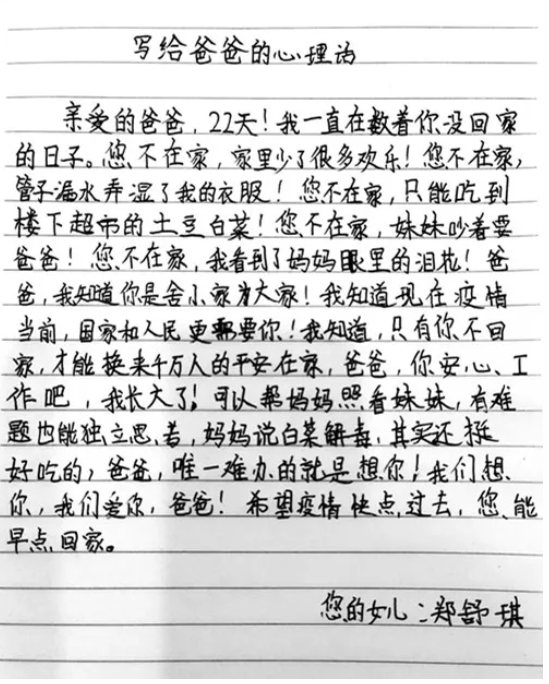 写给爸爸的心理话
亲爱的爸爸，22天！我一直在数着你没回家
的日子。您不在家，家里少了很多欢乐！您不在家，
管子漏水弄湿了我的衣服！您不在家，只能吃到
楼下超市的土豆白菜！您不在家，妹妹吵着要
爸爸！您不在家，我看到了妈妈眼里的泪花！爸
爸，我知道你是舍小家为大家！我知道现在疫情
当前，国家和人民更需要你！我知道，只有你不回
家，才能换来千万人的平安在家，爸爸，你安心工
作吧，我长大了！可以帮妈妈照看妹妹，有难
题也能独立思考，妈妈说白菜解毒，其实还挺
好吃的，爸爸，唯一难办的就是想你！我们想
你，我们爱你，爸爸！希望疫情快点过去，您能
早点回家。
您的女儿：郑舒琪